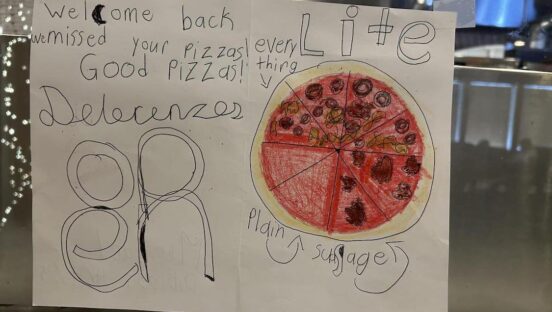 Welcome back
we missed your pizzas!
Good Pizzas!
Delorenzos
Lite
every
thing
Plain
Sussage